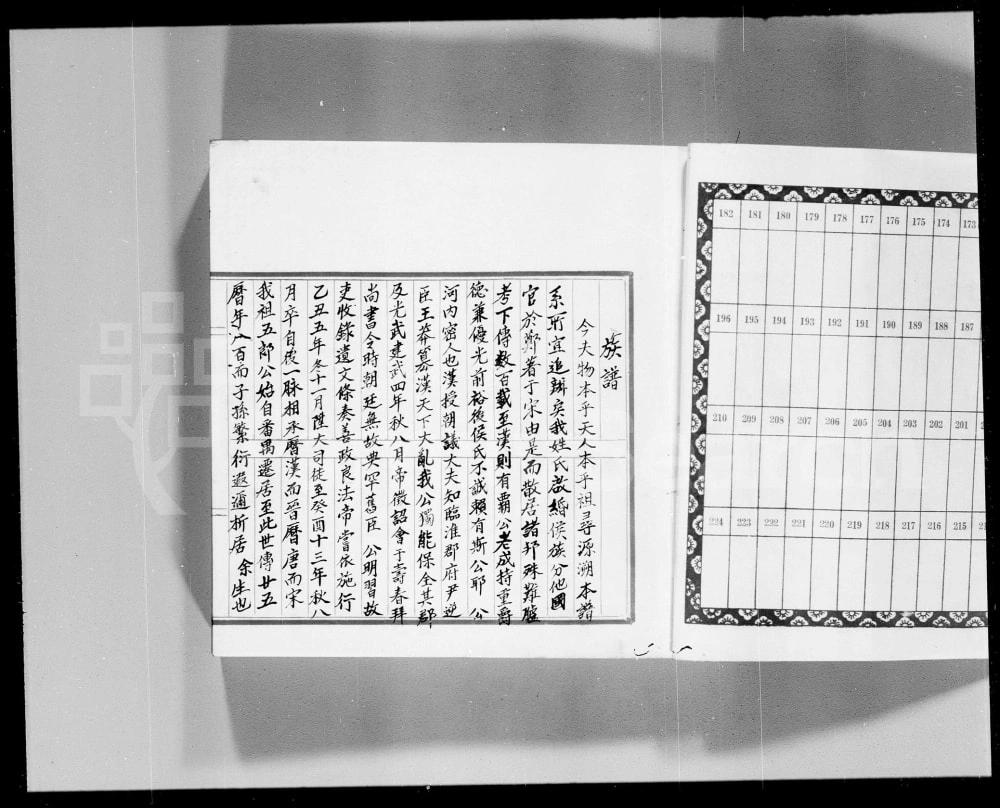 族譜
今夫物本乎天人本乎祖尋源溯本譜
系所宜追辨矣我姓氏啟緡侯族分他國
官於鄭著于宋由是而散居諸邦殊難臚
考下傳数百載至漢則有霸公老成持重爵
德兼優光前裕後侯氏不誠賴有斯公耶 公
河内密人也漢授朝議大夫知臨淮郡府尹逆
臣王莽篡漢天下大亂我公獨能保全其郡
及光武建武四年秋八月帝徵詔會于壽春拜
尚書令時朝廷無故典罕舊臣 公明習故
吏收錄遺文條奏善政良法帝嘗依施行
乙丑五年冬十一月陞大司徒至癸酉十三年秋八
月卒自後一脉相承曆漢而晉曆唐而宋
我祖五郎公始自番禺遷居至此世傳廿五
曆年八百而子孫繁衍遐邇析居 余生也
182 181 180 179 178 177 176 175 174 173
196 195 194 193 192 191 190 189 188 187
210 209 208 207 206 205 204 203 202 201
224 223 222 221 220 219 218 217 216 215